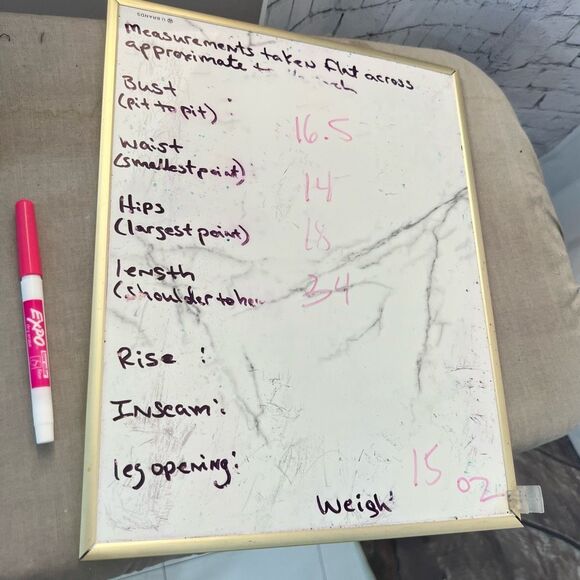 U BRANDS
measurements taken flat across
approximate
Bust
(pit to pit)
16.5
Waist
(smallest point)
14
Hips
(largest point)
18
length
(shoulder to
34
Rise :
Inseam:
leg opening:
15 oz
Weigh
EXPO